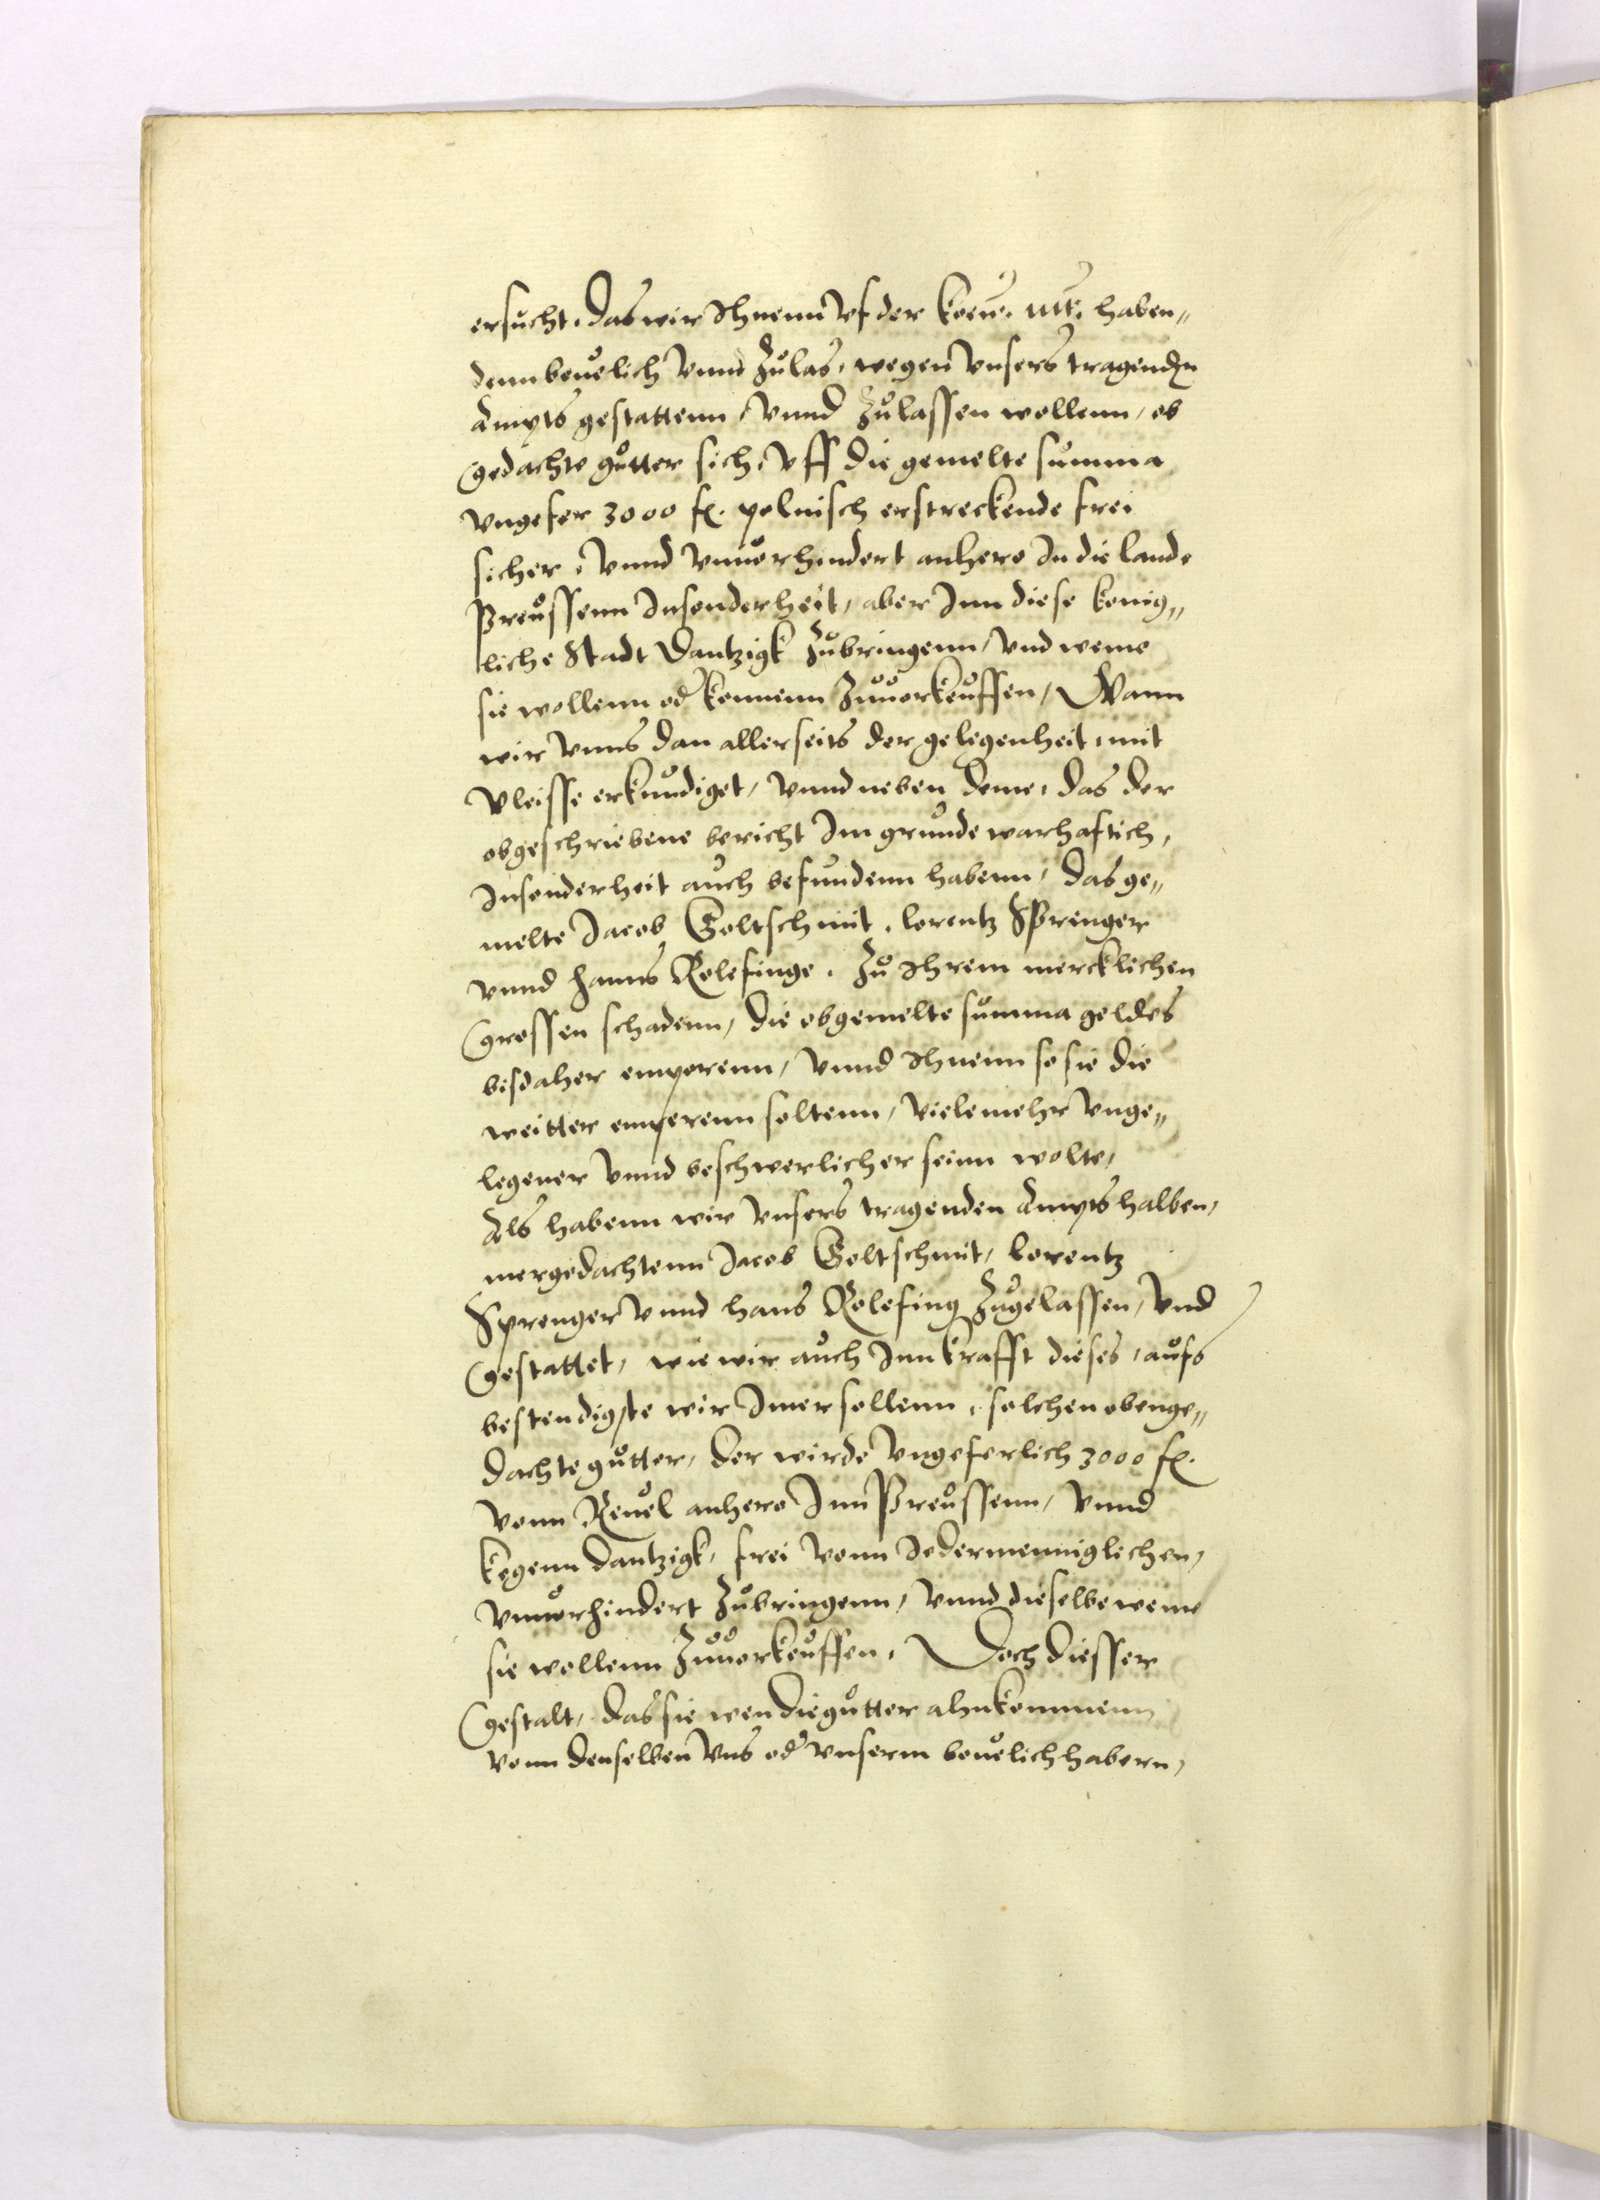 ersucht. das wir Ihnenn vf der Koen. Mt. haben„
denn beuelich vnnd Zulas, wegen vnsers tragenden
Ampts gestattenn, vnnd Zulassen wollenn, ob
gedachte gutter sich, vff die gemelte summa
vngefer 3000 fl. polnisch erstreckende frei
sicher, vnnd vnuorhindert anhero In die lande
Preussenn Insonderheit, aber Inn diese konig„
liche Stadt Dantzigk Zubringenn, vnd weme
sie wollenn od konnenn Zuuorkeuffen, Wann
wir vnns dan allerseits der gelegenheit, mit
vleisse erkundiget, vnnd neben deme, das der
obgeschriebene bericht Im grunde warhaftich,
Insonderheit auch befundenn habenn, das ge„
melte Jacob Goltschmit, lorentz Sprenger
vnnd Hanns Rolefinge. Zu Ihrem mercklichen
grossen schadenn, die obgemelte summa geldes
bisdaher emporenn, vnnd Ihnenn so sie die
weitter emperenn soltenn, vielemehr vnge„
legener vnnd beschwerlicher seinn wolte,
Als habenn wir vnsers tragenden Ampts halben,
mergedachtenn Jacob Goltschmit, lorentz
Sprenger vnnd hans Rolefing Zugelassen, vnd
gestattet, wie wir auch Inn krafft dieses, aufs
bestendigste wir Imer sollenn, solchen obenge„
dachte gutter, der wirde vngeferlich 3000 fl.
vonn Reuel anhero Inn Preussenn, vnnd
kegenn Dantzigk, frei vonn Idermenniglichen,
vnuorhindert Zubringenn, vnnd dieselbe weme
sie wollenn Zuuorkeuffen, Doch diesser
gestalt, das sie wen die gutter ahnkommenn
vonn denselben vns od vnserm beuelichhabern,